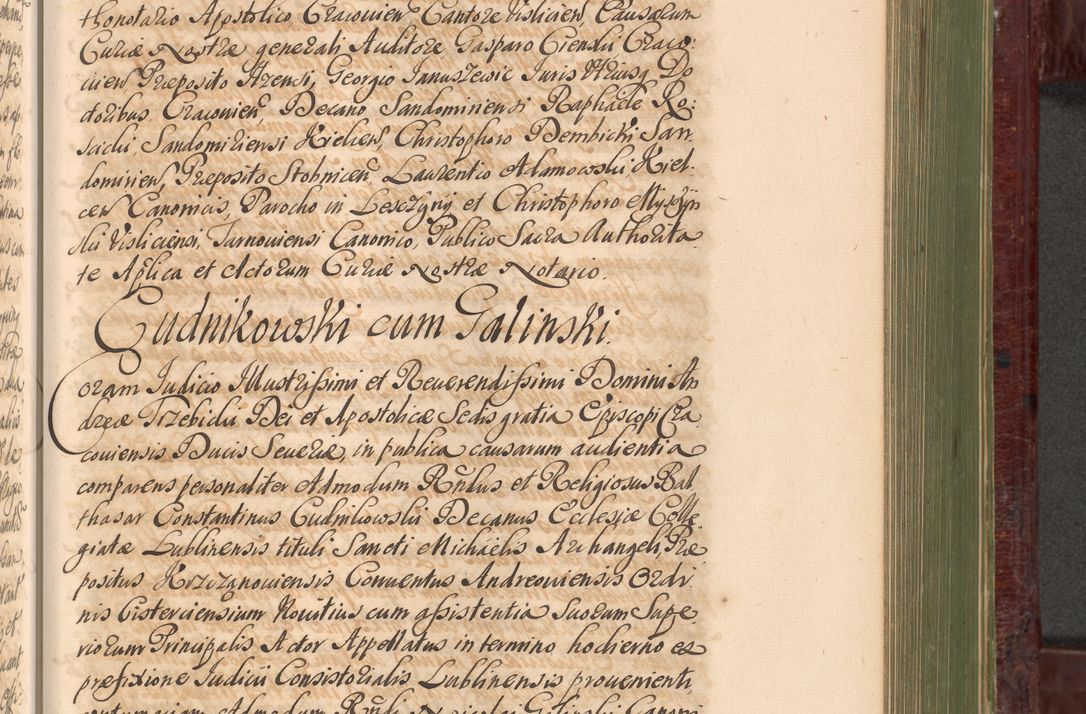 thonotario Apostolico Cracovien̄ Cantore Visliciен̄ Causarum
Curiæ Nostræ generali Auditore Gasparo Cienski Craco:
vien̄, Præposito Ilzensi, Georgio Januszewic Iuris Utriusq̄ Do
ctoribus Cracovien̄ Decano Sandomiriensi Raphaele Ko:
sicki, Sandomiriensi Kielcen̄, Christophoro Dembicki San
domirien̄, Præposito Stobnicen̄, Laurentio Adamowski, Kiel
cen̄ Canonicis, Parocho in Lesczyny et Christophoro Myrzyn
ski Visliciensi, Tarnoviensi Canonico, Publico Sacra Authorita
te Ap̄lica et Actorum Curiæ Nostræ Notario.
Cudnikowski cum Galinski.
Coram Iudicio Illustrissimi et Reverendissimi Domini An
dreæ Trzebicki Dei et Apostolicæ Sedis gratia Episcopi Cra
coviensis Ducis Severiæ, in publica causarum audientia
comparens personaliter Admodum Rn̄dus et Religiosus Bal
thasar Constantinus Cudnikowski Decanus Ecclesiæ Colle
giatæ Lublinensis tituli Sancti Michaelis Archangeli, Præ
positus Krzczanowiensis Conventus Andreoviensis Ordi
nis Cisterciensium Novitius cum assistentia Suorum Supe
riorum Principalis Actor Appellatus in termino hodierno ex
præfixione Iudicii Consistorialis Lublinensis provenienti
contumaciam Admodum Rn̄di Nicolai Galinski Canoni